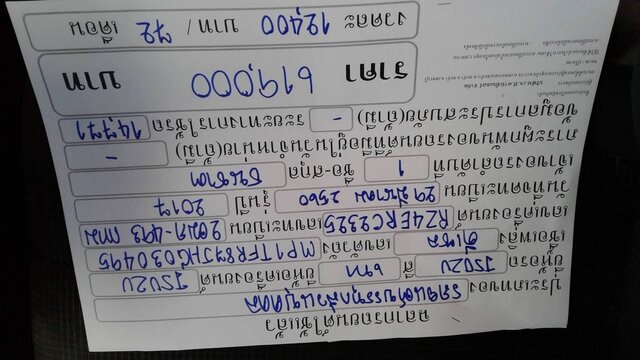 ฉลากรถยนต์ใช้แล้ว
ประเภทของ รถยนต์บรรทุกส่วนบุคคล
ยี่ห้อรถ ISUZU สี เทา ยี่ห้อเครื่องยนต์ ISUZU
เชื้อเพลิง ดีเซล เลขตัวถัง MP1TFR87JHG030495
เลขเครื่องยนต์ RZ4ERC9325 เลขทะเบียน
วันที่จดทะเบียน 29 มีนาคม 2560 รุ่นปี 2017
เจ้าของรถลำดับที่ 1 ชื่อ-สกุล
ภาระผูกพันของรถยนต์ที่มีอยู่ในวันจำหน่าย(ถ้ามี) -
ข้อมูลการประสบภัย(ถ้ามี) - ระยะทางการใช้รถ 14,771
ราคา 619,000 บาท
งวดละ 12,400 บาท / 72 เดือน